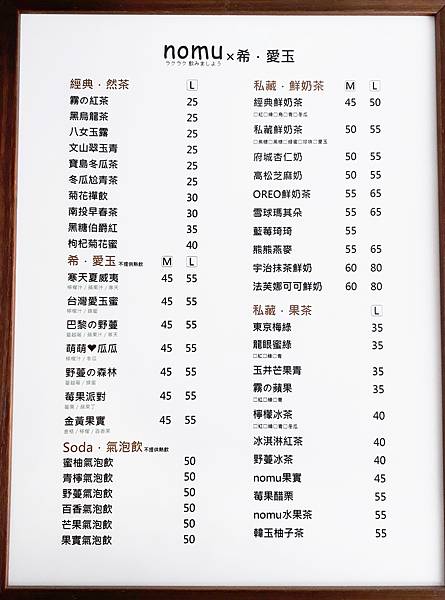 nomu×希・愛玉
ラクラク 飲みましょう
經典・然茶 L
霧の紅茶 25
黑烏龍茶 25
八女玉露 25
文山翠玉青 25
寶島冬瓜茶 25
冬瓜尬青茶 25
菊花禪飲 30
南投早春茶 30
黑糖伯爵紅 35
枸杞菊花蜜 40
希・愛玉 不提供熱飲 M L
寒天夏威夷 45 55
檸檬汁 / 蘋果汁 / 寒天
台灣愛玉蜜 45 55
檸檬汁 / 蜂蜜
巴黎の野蔓 45 55
蔓越莓 / 蘋果汁 / 寒天
萌萌♥瓜瓜 45 55
檸檬汁 / 冬瓜
野蔓の森林 45 55
蔓越莓 / 蜂蜜
莓果派對 45 55
莓果 / 蘋果丁
金黃果實 45 55
金桔 / 檸檬 / 百香果
Soda・氣泡飲 不提供熱飲
蜜柚氣泡飲 50
青檸氣泡飲 50
野蔓氣泡飲 50
百香氣泡飲 50
芒果氣泡飲 50
果實氣泡飲 50
私藏・鮮奶茶 M L
經典鮮奶茶 45 50
□紅□綠□烏□青□冬瓜
私藏鮮奶茶 50 55
□焦糖□黑糖□蜂蜜□珍珠□愛玉
府城杏仁奶 50 55
高松芝麻奶 50 55
OREO鮮奶茶 55 65
雪球瑪其朵 55 65
藍莓琦琦 55
熊熊燕麥 55 65
宇治抹茶鮮奶 60 80
法芙娜可可鮮奶 60 80
私藏・果茶 L
東京梅綠 35
龍眼蜜綠 35
□紅□綠□青
玉井芒果青 35
霧の蘋果 35
□紅□綠□青
檸檬冰茶 40
□紅□綠□青□冬瓜
冰淇淋紅茶 40
野蔓冰茶 40
nomu果實 45
莓果醋栗 55
nomu水果茶 55
韓玉柚子茶 55